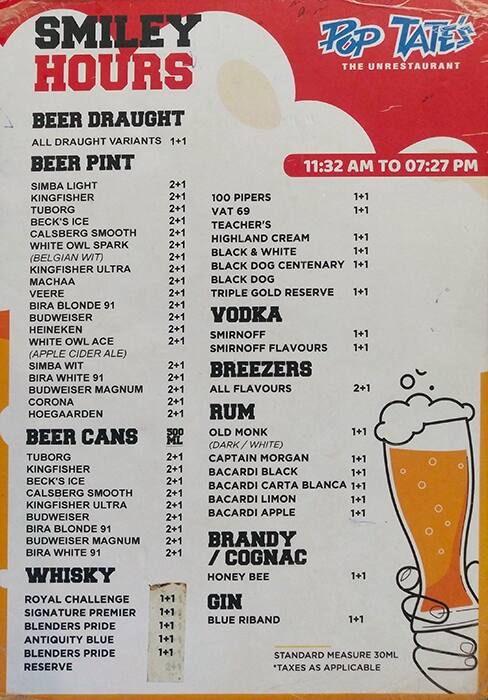 SMILEY
HOURS
POP TATE'S
THE UNRESTAURANT
11:32 AM TO 07:27 PM
BEER DRAUGHT
ALL DRAUGHT VARIANTS 1+1
BEER PINT
SIMBA LIGHT 2+1
KINGFISHER 2+1
TUBORG 2+1
BECK'S ICE 2+1
CALSBERG SMOOTH 2+1
WHITE OWL SPARK 2+1
(BELGIAN WIT) 2+1
KINGFISHER ULTRA 2+1
MACHAA 2+1
VEERE 2+1
BIRA BLONDE 91 2+1
BUDWEISER 2+1
HEINEKEN 2+1
WHITE OWL ACE 2+1
(APPLE CIDER ALE)
SIMBA WIT 2+1
BIRA WHITE 91 2+1
BUDWEISER MAGNUM 2+1
CORONA 2+1
HOEGAARDEN 2+1
BEER CANS 500 ML
TUBORG 2+1
KINGFISHER 2+1
BECK'S ICE 2+1
CALSBERG SMOOTH 2+1
KINGFISHER ULTRA 2+1
BUDWEISER 2+1
BIRA BLONDE 91 2+1
BUDWEISER MAGNUM 2+1
BIRA WHITE 91 2+1
WHISKY
ROYAL CHALLENGE 1+1
SIGNATURE PREMIER 1+1
BLENDERS PRIDE 1+1
ANTIQUITY BLUE 1+1
BLENDERS PRIDE 1+1
RESERVE 2+1
100 PIPERS 1+1
VAT 69 1+1
TEACHER'S
HIGHLAND CREAM 1+1
BLACK & WHITE 1+1
BLACK DOG CENTENARY 1+1
BLACK DOG
TRIPLE GOLD RESERVE 1+1
VODKA
SMIRNOFF 1+1
SMIRNOFF FLAVOURS 1+1
BREEZERS
ALL FLAVOURS 2+1
RUM
OLD MONK 1+1
(DARK / WHITE)
CAPTAIN MORGAN 1+1
BACARDI BLACK 1+1
BACARDI CARTA BLANCA 1+1
BACARDI LIMON 1+1
BACARDI APPLE 1+1
BRANDY
/ COGNAC
HONEY BEE 1+1
GIN
BLUE RIBAND 1+1
STANDARD MEASURE 30ML
*TAXES AS APPLICABLE